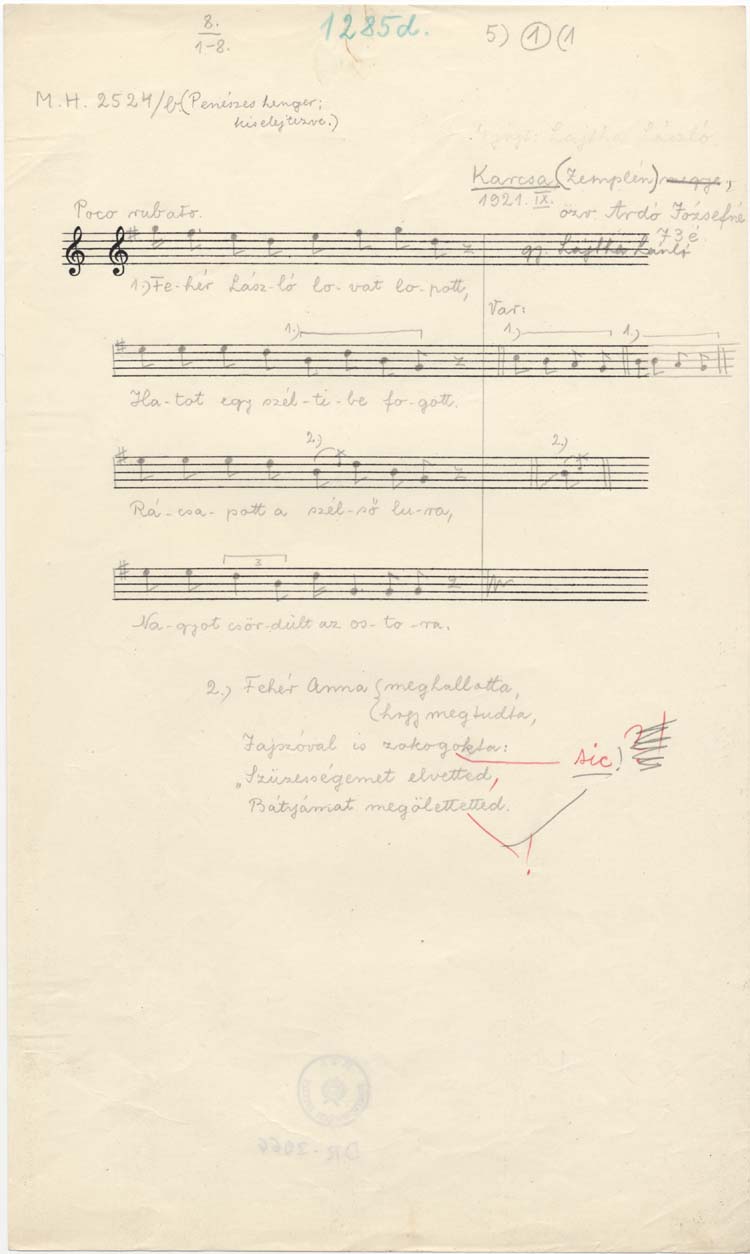 8.
1-8.
1285d.
5) 1 (1
M.H. 2524/b. (Penészes henger;
kiselejtezve.)
Gyűjt: Lajtha László.
Karcsa (Zemplén) megye,
1921. IX.
özv. Ardó Józsefné
73 é
Poco rubato.
gy. Lajtha László
1.) Fe-hér Lász-ló lo-vat lo-pott,
Var:
1.) 1.) 1.)
Ha-tot egy szél-ti-be fo-gott.
2.) 2.)
Rá-csa-pott a szél-ső lu-ra,
3
Na-gyot csör-dült az os-to-ra.
2.) Fehér Anna meghallotta,
hogy megtudta,
Fajszóval is zokogokta:
sic!
„Szüzességemet elvetted,
Bátyámat megölettetted.
!
DR-2066